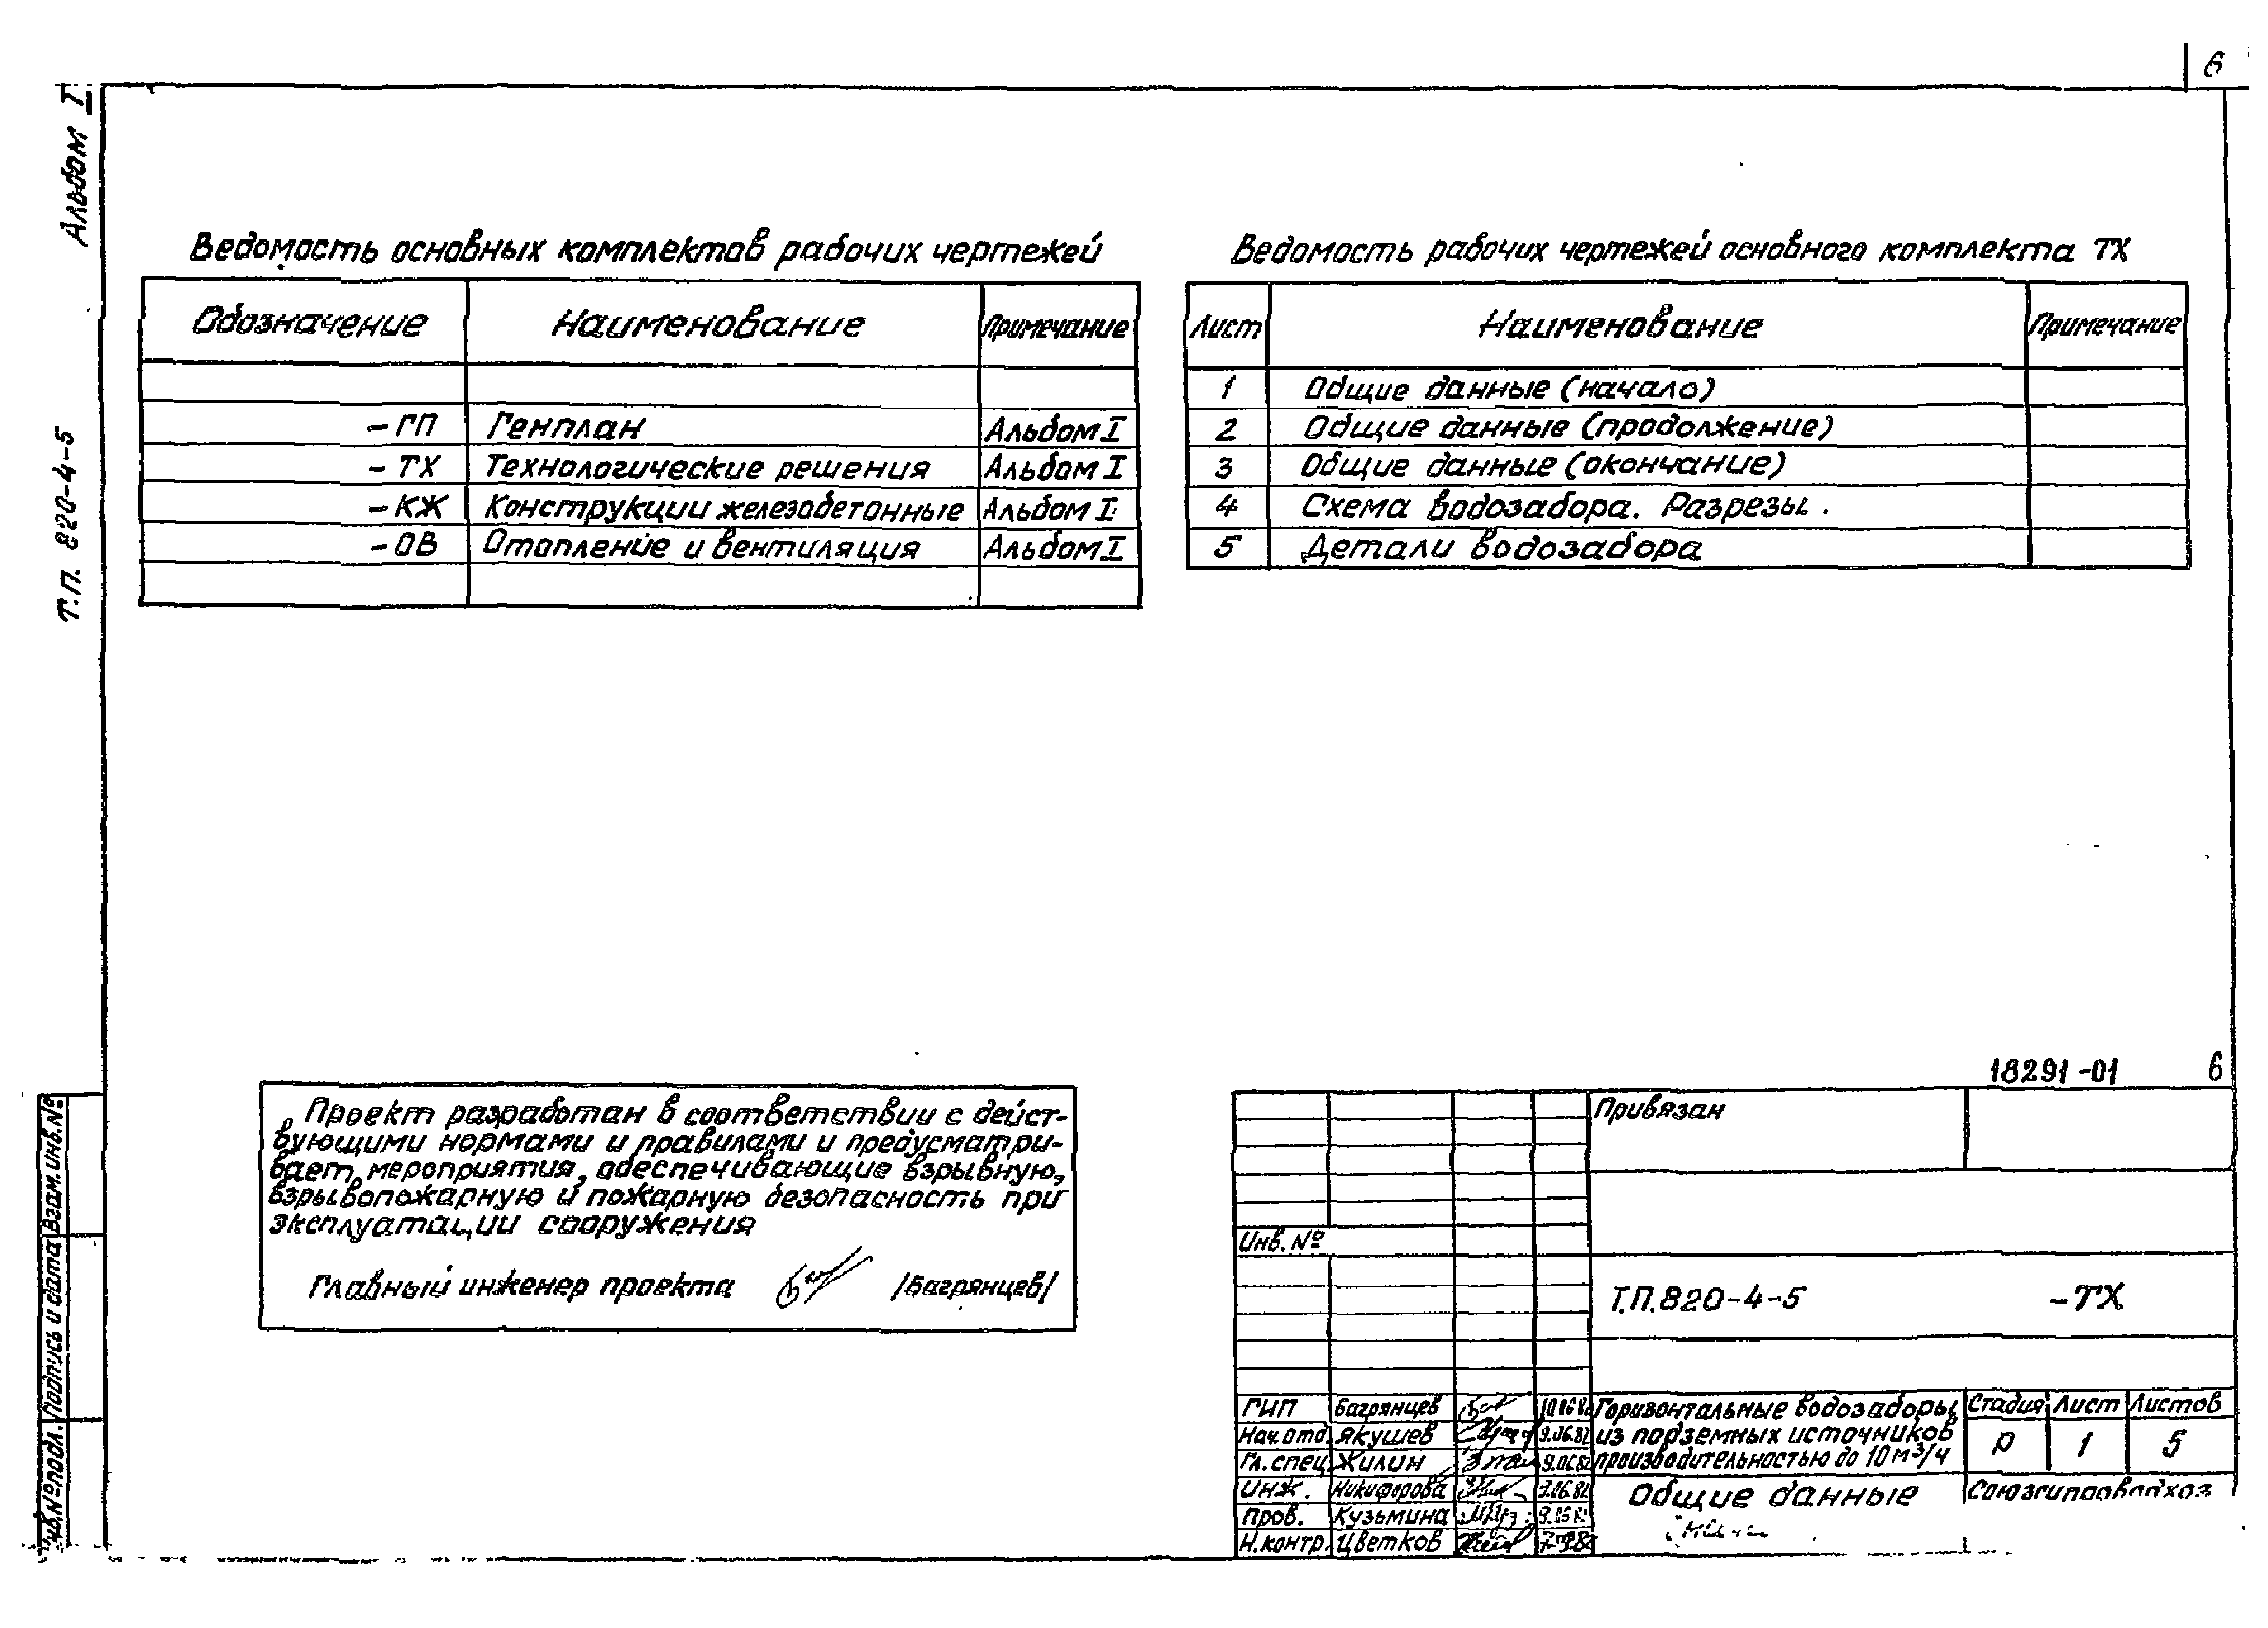 6
Альбом I
Т.П. 820-4-5
Ведомость основных комплектов рабочих чертежей
Обозначение Наименование Примечание
-ГП Генплан Альбом I
-ТХ Технологические решения Альбом I
-КЖ Конструкции железобетонные Альбом I
-ОВ Отопление и вентиляция Альбом I
Ведомость рабочих чертежей основного комплекта ТХ
Лист Наименование Примечание
1 Общие данные (начало)
2 Общие данные (продолжение)
3 Общие данные (окончание)
4 Схема водозабора. Разрезы.
5 Детали водозабора
Проект разработан в соответствии с дейст-
вующими нормами и правилами и предусматри-
вает мероприятия, обеспечивающие взрывную,
взрывопожарную и пожарную безопасность при
эксплуатации сооружения
Главный инженер проекта /Багрянцев/
18291-01 6
Привязан
Инв. №
Т.П.820-4-5 -ТХ
ГИП Багрянцев 10.06.82
Нач.отд Якушев 9.06.82
Гл.спец Жилин 9.06.82
Инж. Никифорова
Пров. Кузьмина
Н.контр. Цветков
Горизонтальные водозаборы
из подземных источников
производительностью до 10 м³/ч
Стадия Лист Листов
Р 1 5
Общие данные
Союзгипроводхоз
Взам. инв. №
Подпись и дата
Инв. № подл.